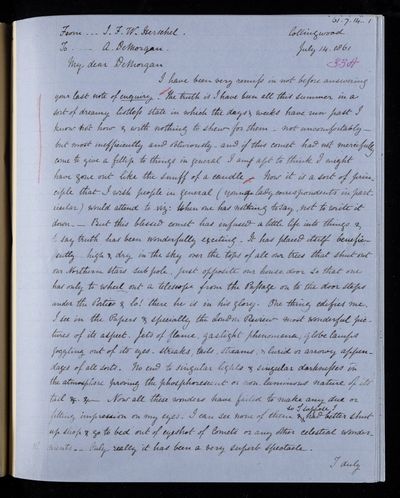 61.7.14.1
From ... J. F. W. Herschel. Collingwood
To ... A. DeMorgan. July 14. 1861
My dear DeMorgan
I have been very remiss in not before answering
your last note of enquiry. The truth is I have been all this summer in a
sort of dreamy listless state in which the days & weeks have run past I
know not how & with nothing to shew for them – not uncomfortably –
but most inefficiently and oblivionly. and if this comet had not mercifully
come to give a fillip to things in general I am apt to think I might
have gone out like the snuff of a candle. Now it is a sort of prin-
ciple that I wish people in general (young lady correspondents in part-
icular) would attend to viz: When one has nothing to say, not to write it
down. – But this blessed comet has infused a little life into things &
to say truth has been wonderfully exciting. It has placed itself benefi-
cently high & dry in the sky over the tops of all our trees that shut out
our Northern stars sub polo, just opposite our house door so that one
has only to wheel out a telescope from the Passage on to the door steps
under the Portico & lo! there he is in his glory. One thing chafes me.
I see in the Papers & specially the London Review most wonderful pic-
tures of its aspect. Jets of flame, gaslight phenomena, globe lamps
goggling out of its eyes. streaks, tails, streams, & lurid or arrowy appen-
dages of all sorts. No end to singular lights & singular darknesses in
the atmosphere proving the phosphorescent or non luminous nature of its
tail &c &c – Now all these wonders have failed to make any due or
fitting impression on my eyes. I can see none of them & I suppose I had better shut
up shop & go to bed out of eyeshot of Comets or any other celestial wonder-
ments. – Only really it has been a very superb spectacle.
I duly